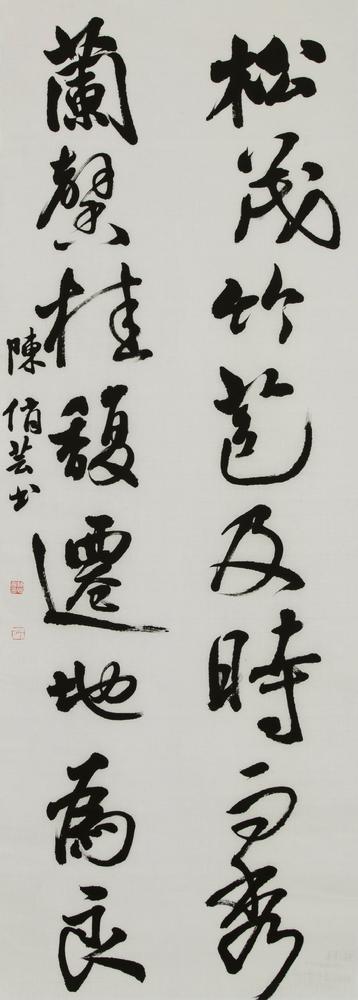 松茂竹苞及時而秀
蘭馨桂馥遷地為良
陳俏芸書